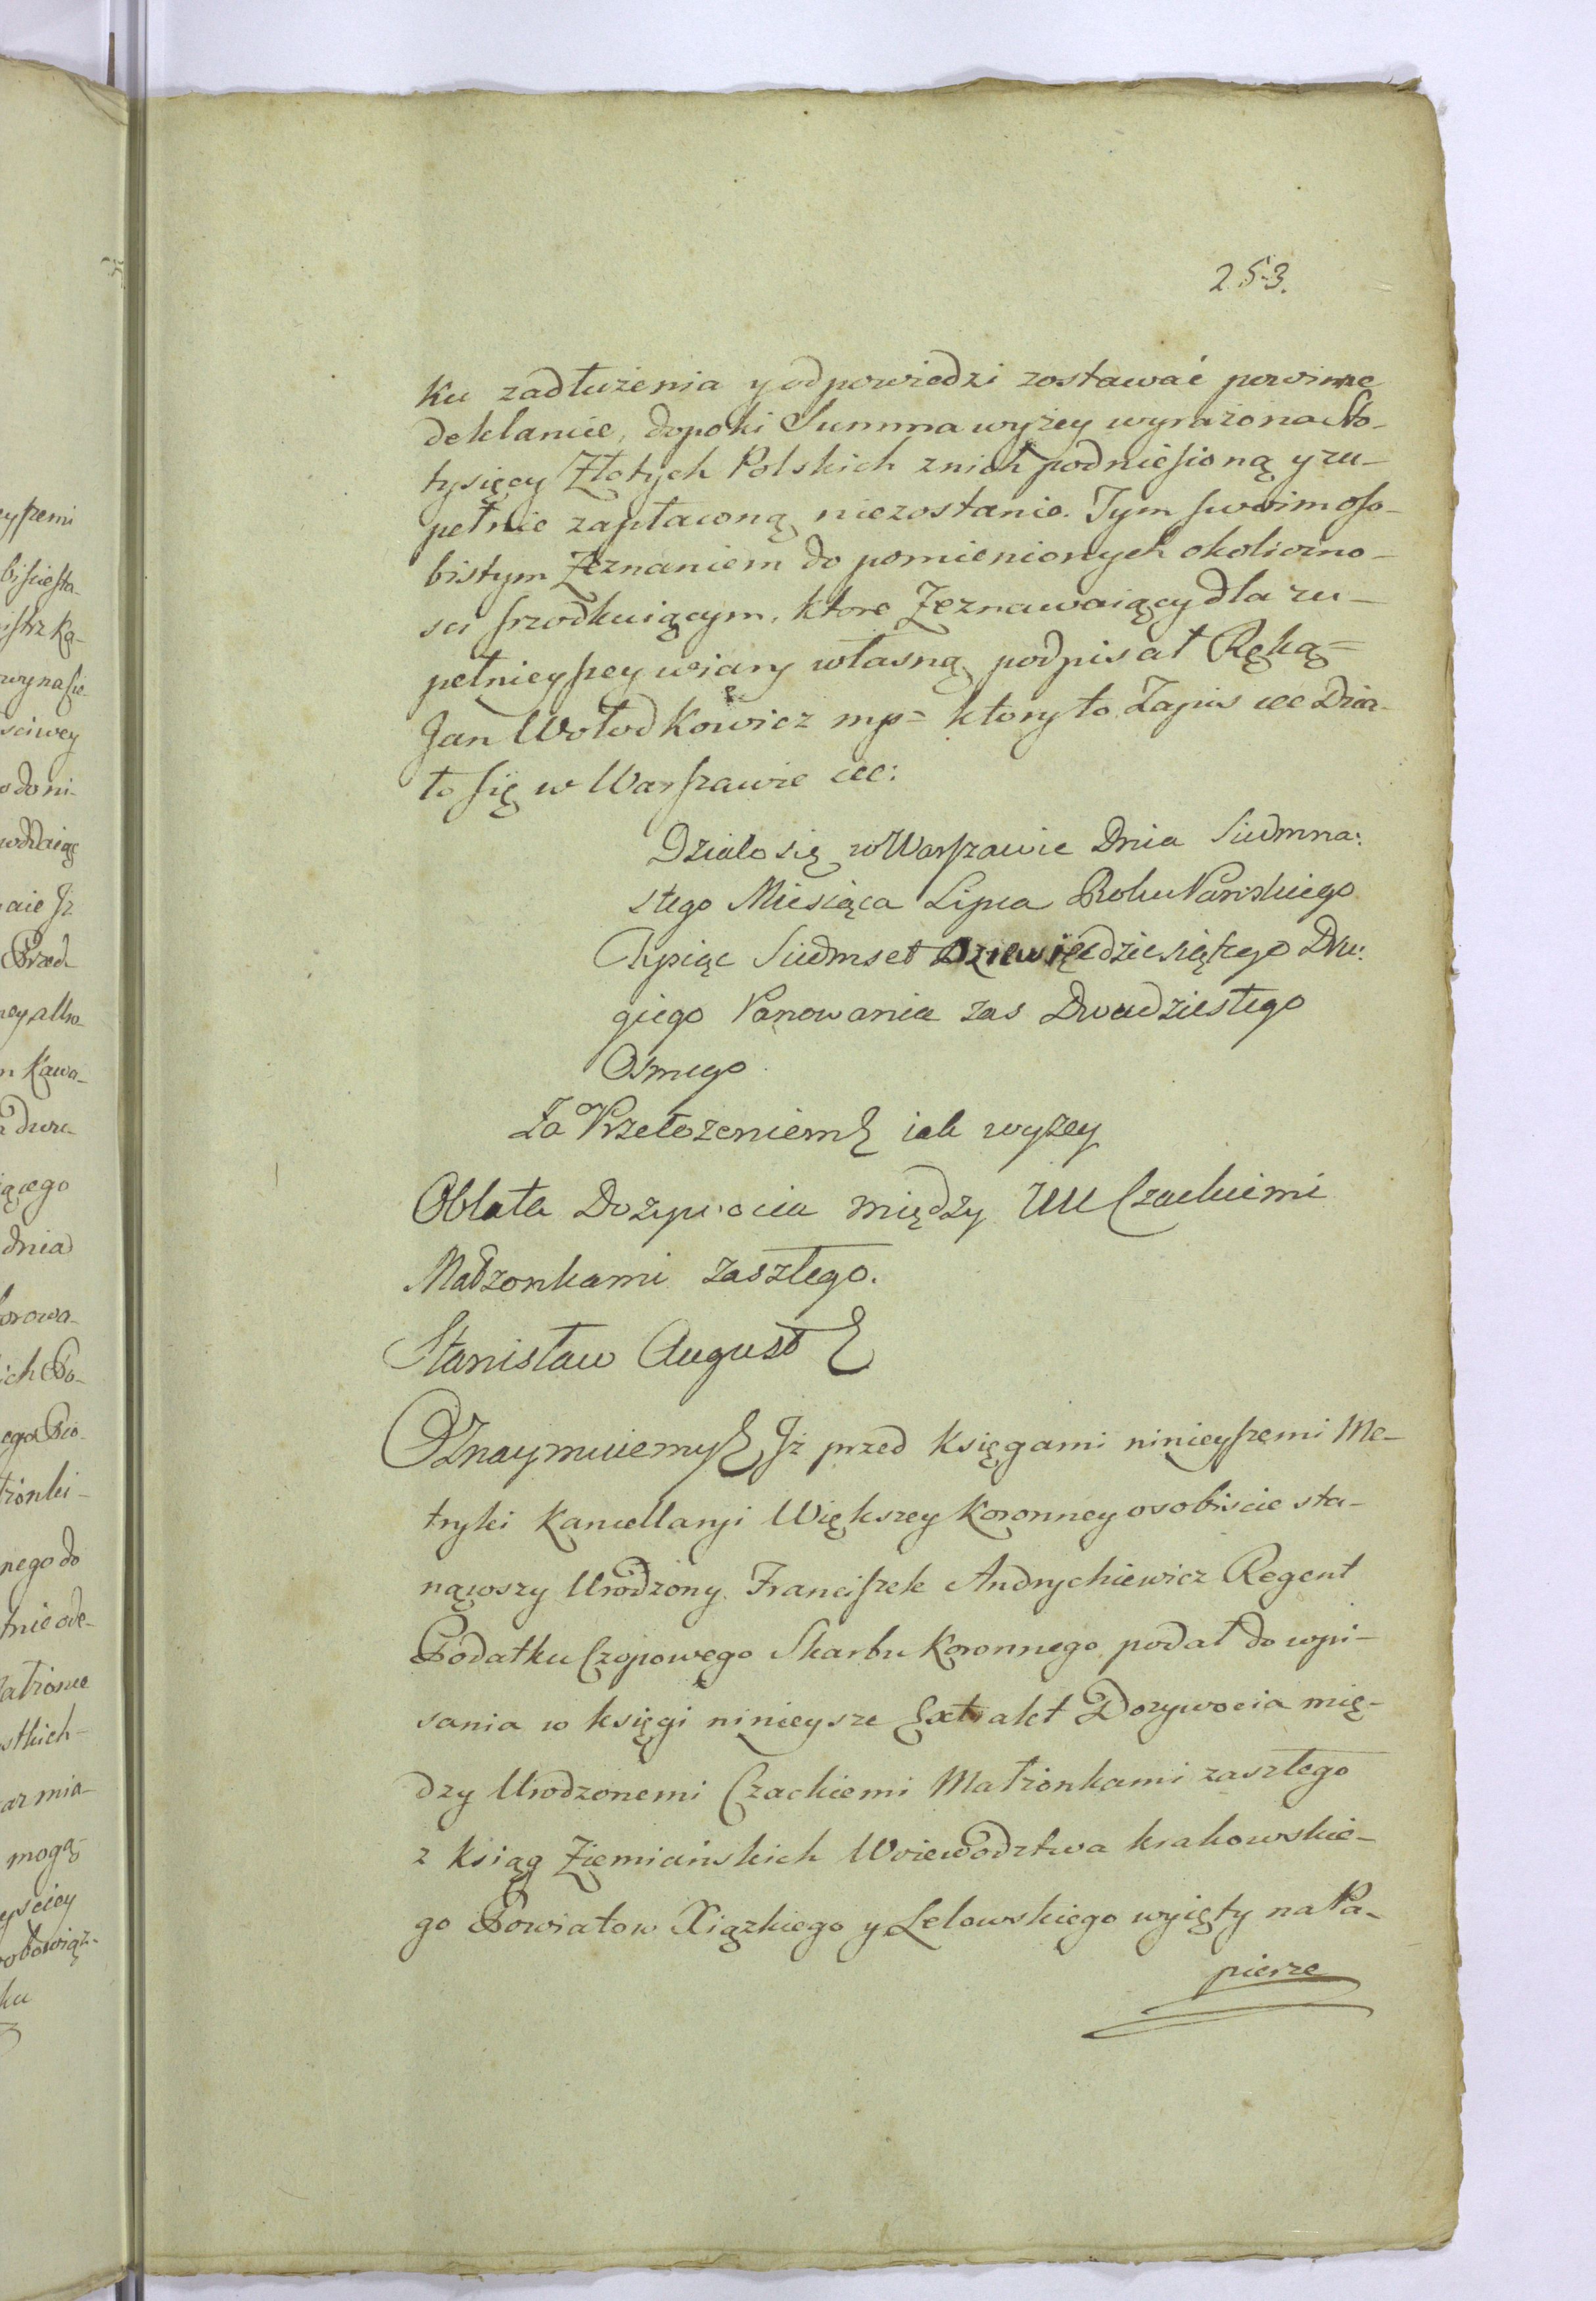 253.
ku zadłużenia y odpowiedzi zostawać powinne
deklanice, dopoki Summa wyżey wyrażona Sto-
tysięcy Złotych Polskich znich podniesioną y zu-
pełnie zapłaconą niezostanie. Tym swoim oso-
bistym Zeznaniem do pomienionych okoliczno-
sci srzodkuiącym, ktore Zeznawaiący dla zu-
pełnieyszey wiary własną podpisał Ręką=
Jan Wołodkowicz mp= ktory to Zapis etc Dzia-
ło się w Warszawie etc:
Działo się w Warszawie Dnia Siedmna:
stego Miesiąca Lipca Roku Pańskiego
Tysiąc Siedmset Dziewięćdziesiątego Dru:
giego Panowania zas Dwudziestego
Osmego
Za Przełozeniem etc iak wyżey
Oblata Dozywocia między UU Czackiemi
Małzonkami zaszłego.
Stanisław August etc
Oznaymuiemy etc Iż przed Księgami ninieyszemi Me-
tryki Kancellaryi Większey Koronney osobiscie sta-
nąwszy Urodzony Franciszek Andrychiewicz Regent
Podatku Czopowego Skarbu Koronnego podał do wpi-
sania w księgi ninieysze Extrakt Dozywocia mię-
dzy Urodzonemi Czackiemi Małżonkami zaszłego
z Ksiąg Ziemiańskich Woiewodztwa krakowskie-
go Powiatow Xiązkiego y Lelowskiego wyięty na Pa-
pierze